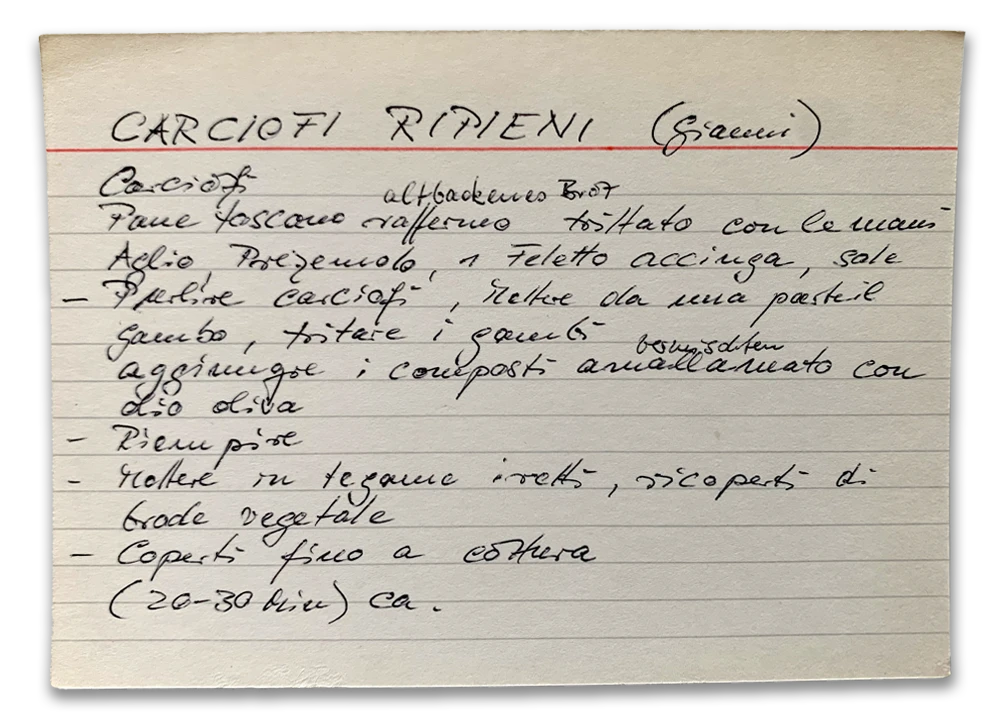 CARCIOFI RIPIENI (Gianni)
Carciofi
altbackenes Brot
Pane toscano raffermo trittato con le mani
Aglio, Prezemolo, 1 Feletto accinga, sale
- Pulire carciofi, Mettere da una parte il
gambo, tritare i gambi
vermischten
aggiungre i composti amallamato con
olio oliva
- Riempire
- Mettere in tegame iretti, ricoperti di
brode vegetale
- Coperti fino a cottura
(20-30 Min) ca.